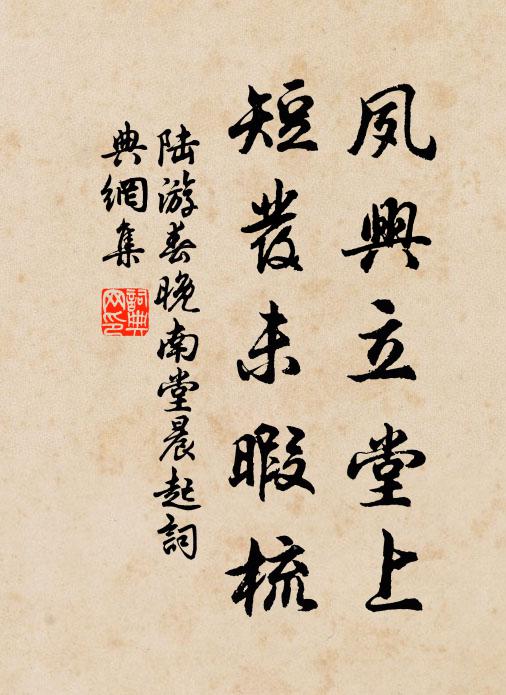 夙興立堂上
短發未暇梳
陸游春晚南堂晨起詞
典網集
詞典網印